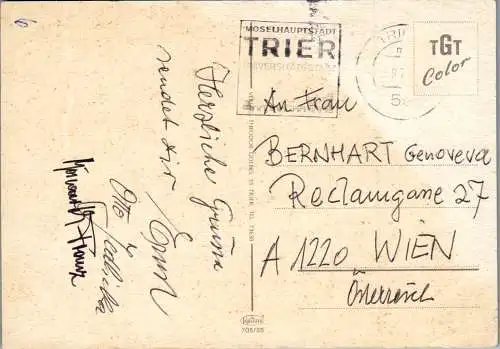 6
MOSELHAUPTSTADT
TRIER
UNIVERSITÄTSSTADT
TRIER
55
TGT
Color
Herzliche Grüsse
sendet dir
Ernst
Otto
Franz
An Frau
BERNHART Genoveva
Reclamgasse 27
A 1220 WIEN
Österreich
705/55